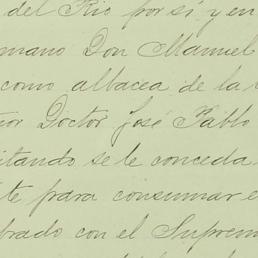 del Rio por sí y en
mano Don Manuel
como albacea de la
or Doctor José Pablo
itando se le conceda
te para consumar e
brado con el Suprem